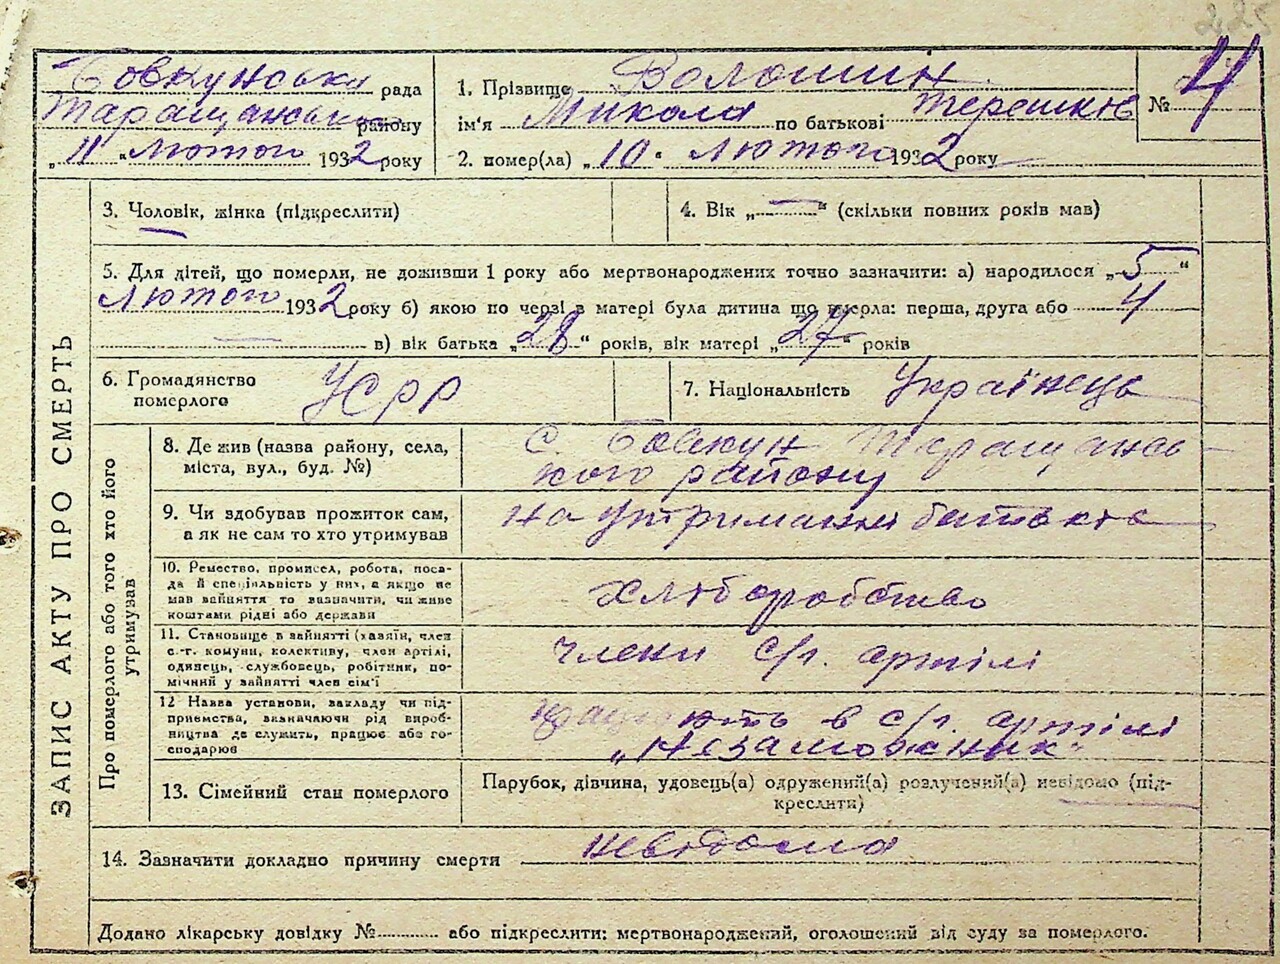 225
Бовкунська рада
Таращанського району
„11“ Лютого 1932 року
1. Прізвище Волошин
ім'я Микола по батькові Терешків
№ 4
2. помер(ла) „10“ Лютого 1932 року
3. Чоловік, жінка (підкреслити)
4. Вік „—“ (скільки повних років мав)
5. Для дітей, що померли, не доживши 1 року або мертвонароджених точно зазначити: а) народилося „5“
Лютого 1932 року б) якою по черзі в матері була дитина що вмерла: перша, друга або 4
— в) вік батька „28“ років, вік матері „27“ років
6. Громадянство
померлого
УСРР
7. Національність Українець
ЗАПИС АКТУ ПРО СМЕРТЬ
Про померлого або того хто його
утримував
8. Де жив (назва району, села,
міста, вул., буд. №)
С. Бовкун Таращансь-
кого району
9. Чи здобував прожиток сам,
а як не сам то хто утримував
На утриманні батьків
10. Ремество, промисел, робота, поса-
да й спеціяльність у них, а якщо не
мав зайняття то зазначити, чи живе
коштами рідні або держави
хліборобство
11. Становище в зайнятті (хазяїн, член
с.-г. комуни, колективу, член артілі,
одинець, службовець, робітник, по-
мічний у зайнятті член сім'ї
члени с/г. артілі
12 Назва установи, закладу чи під-
приємства, зазначаючи рід вироб-
ництва де служить, працює або го-
сподарює
працюють в с/г. артілі
„Незаможник“
13. Сімейний стан померлого
Парубок, дівчина, удовець(а) одружений(а) розлучений(а) невідомо (під-
креслити)
14. Зазначити докладно причину смерти невідома
Додано лікарську довідку № або підкреслити: мертвонароджений, оголошений від суду за померлого.